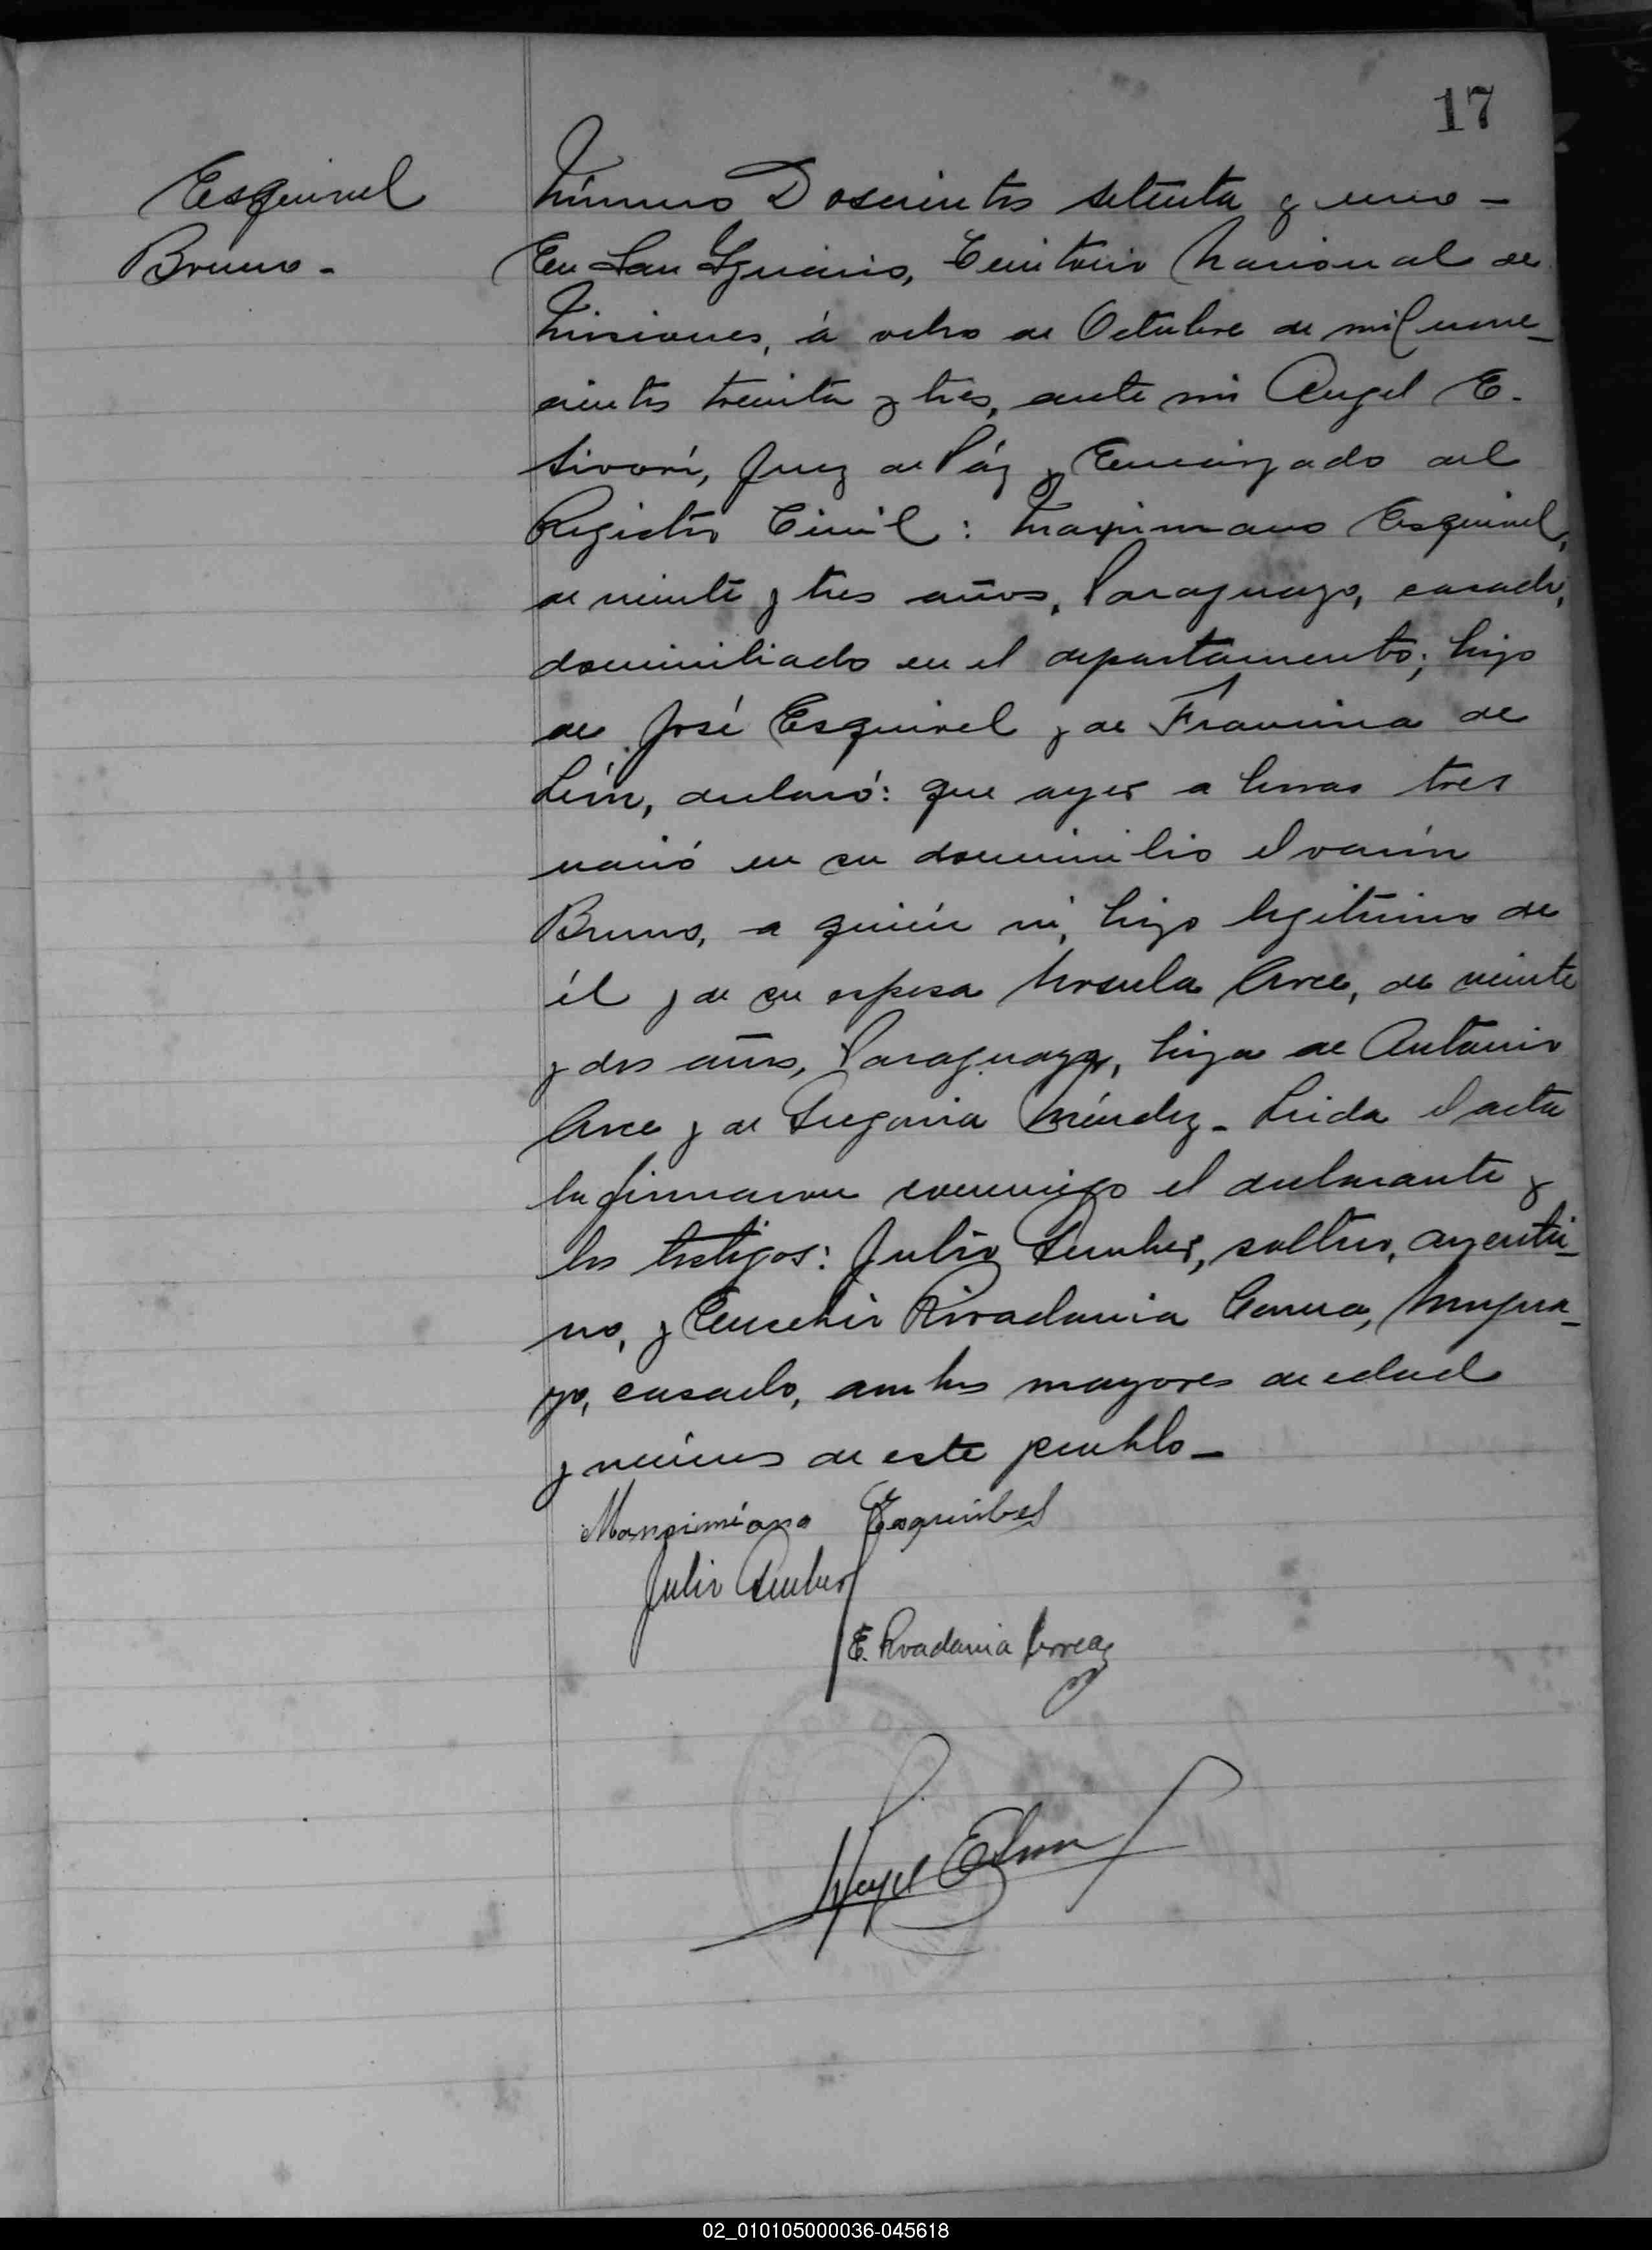 17
Esquivel
Bruno -
Número Doscientos setenta y uno -
En San Ignacio, Territorio Nacional de
Misiones, á ocho de Octubre de mil nove-
cientos treinta y tres, ante mi Angel E.
Sivori, Juez de Páz y Encargado del
Registro Civil: Maximiano Esquivel,
de veinte y tres años, Paraguayo, casado,
domiciliado en el departamento; hijo
de José Esquivel y de Francisca de
León, declaró: que ayer a horas tres
nació en su domicilio el varón
Bruno, a quién vi, hijo legítimo de
él y de su esposa Ursula Arce, de veinte
y dos años, Paraguaya, hija de Antonio
Arce y de Gregoria Méndez - Leida el acta
la firmaron conmigo el declarante y
los testigos: Julio, soltero, argenti-
no, y Eusebio Rivadavia Correa, Urugua-
yo, casado, ambos mayores de edad
y vecinos de este pueblo -
Esquibel
Julio
E. Rivadavia Correa
Angel E.
02_010105000036-045618